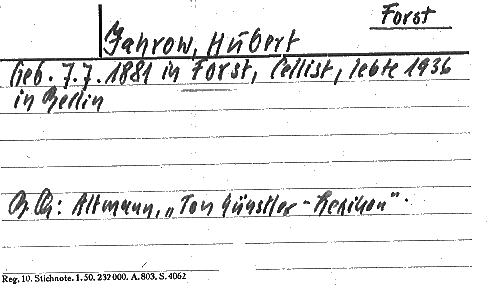 Forst
Jahrow, Hubert
Geb. 7.7.1881 in Forst, Cellist, lebte 1936
in Berlin
Altmann, „Tonkünstler-Lexikon".
Reg. 10. Stichnote. 1. 50. 232000. A. 803. S. 4062